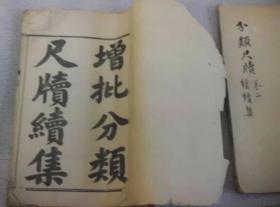 增批分類
尺牘續集
分類尺牘
卷二
續集